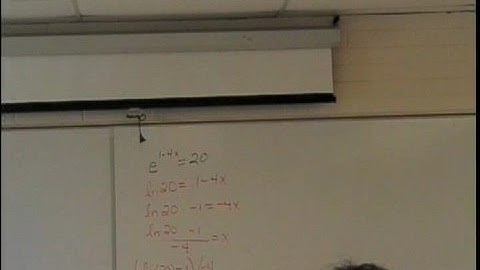 e^{1-4x} = 20
ln 20 = 1-4x
ln 20 -1 = -4x
ln 20 -1 / -4 = x